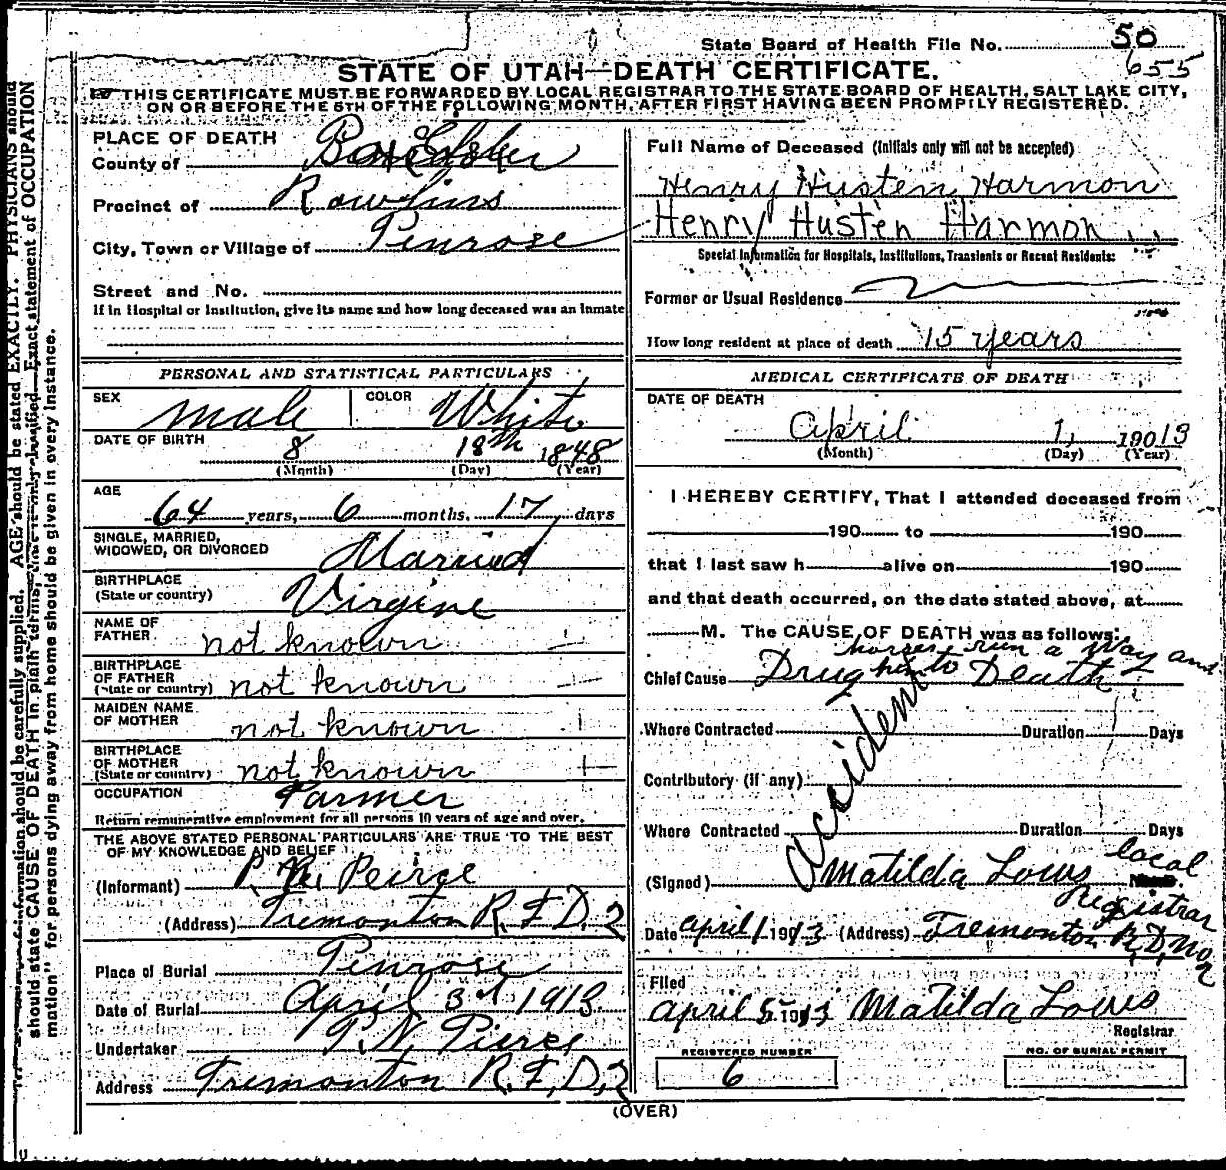 State Board of Health File No. 50
655
STATE OF UTAH—DEATH CERTIFICATE.
THIS CERTIFICATE MUST BE FORWARDED BY LOCAL REGISTRAR TO THE STATE BOARD OF HEALTH, SALT LAKE CITY,
ON OR BEFORE THE 5TH OF THE FOLLOWING MONTH, AFTER FIRST HAVING BEEN PROMPTLY REGISTERED.
PLACE OF DEATH
County of Box Elder
Precinct of Rawlins
City, Town or Village of Penrose
Street and No.
If in Hospital or Institution, give its name and how long deceased was an inmate
PERSONAL AND STATISTICAL PARTICULARS
SEX male COLOR White
DATE OF BIRTH 8 18th 1848
(Month) (Day) (Year)
AGE
64 years, 6 months, 17 days
SINGLE, MARRIED,
WIDOWED, OR DIVORCED Married
BIRTHPLACE
(State or country) Virgine
NAME OF
FATHER not known
BIRTHPLACE
OF FATHER
(State or country) not known
MAIDEN NAME
OF MOTHER not known
BIRTHPLACE
OF MOTHER
(State or country) not known
OCCUPATION Farmer
Return remunerative employment for all persons 10 years of age and over.
THE ABOVE STATED PERSONAL PARTICULARS ARE TRUE TO THE BEST
OF MY KNOWLEDGE AND BELIEF
(Informant) P. N. Peirce
(Address) Tremonton R.F.D. 2
Place of Burial Penrose
Date of Burial April 3d 1913
Undertaker P. N. Pierce
Address Tremonton R.F.D. 2
Full Name of Deceased (Initials only will not be accepted)
Henry Husten Harmon
Henry Husten Harmon
Special Information for Hospitals, Institutions, Transients or Recent Residents:
Former or Usual Residence
How long resident at place of death 15 years
MEDICAL CERTIFICATE OF DEATH
DATE OF DEATH
April 1, 19013
(Month) (Day) (Year)
I HEREBY CERTIFY, That I attended deceased from
190 to 190
that I last saw h alive on 190
and that death occurred, on the date stated above, at
M. The CAUSE OF DEATH was as follows:
horses run a way and
Chief Cause Drug him to Death
accident
Where Contracted Duration Days
Contributory (if any)
Where Contracted Duration Days
(Signed) Matilda Lows local
Registrar
Date april 1 1913 (Address) Tremonton R,D, No 2
Filed
april 5 1913 Matilda Lows
Registrar
REGISTERED NUMBER
6
NO. OF BURIAL PERMIT
(OVER)
information should be carefully supplied. AGE should be stated EXACTLY. PHYSICIANS should
should state CAUSE OF DEATH in plain terms, that it may be classified. Exact statement of OCCUPATION
mation" for persons dying away from home should be given in every instance.